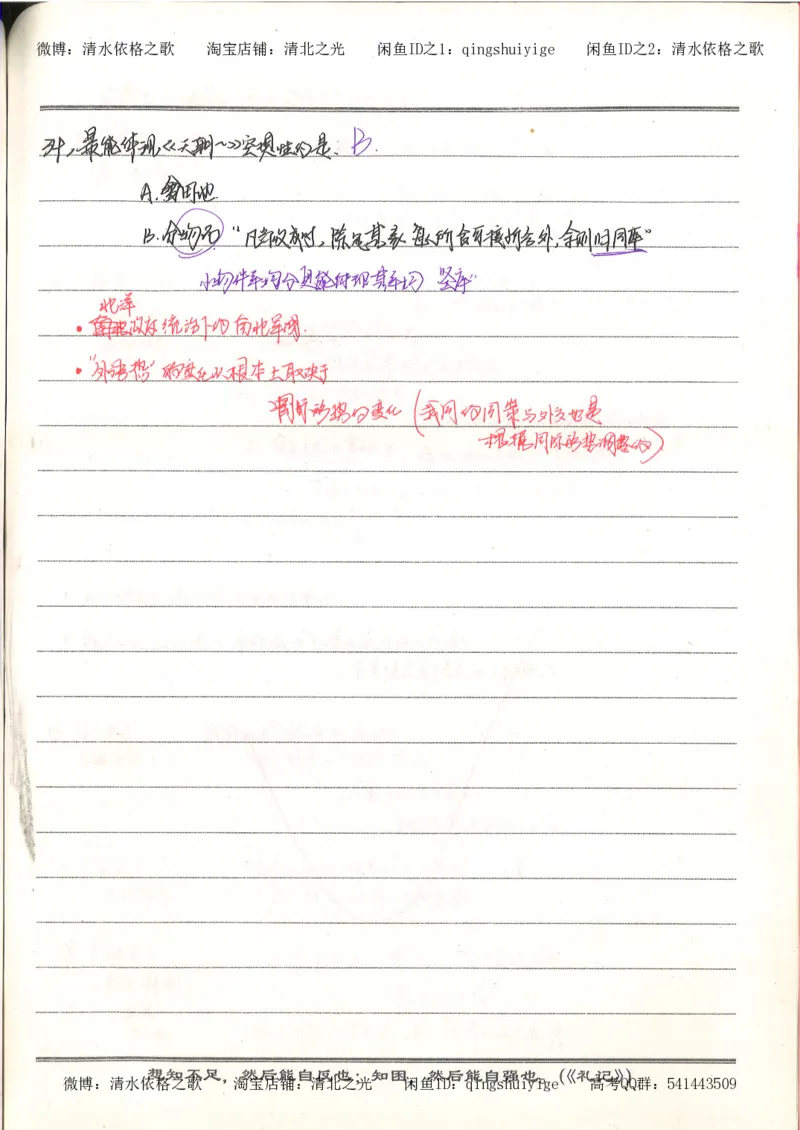 微博：清水依格之歌 淘宝店铺：清北之光 闲鱼ID之1：qingshuiyige 闲鱼ID之2：清水依格之歌
34，最能体现《天朝~》空想性的是. B.
A.
B. 分物品 "凡当收成时，除足其 每人所食可接 外，余则归国库"
小物件平均分更能体现其平均
北洋
• 政府统治下的南北军阀.
• "外语热"的变化从根本上取决于
国际形势的变化 (我国的国策与外交也是
根据国际形势调整的)
想知不足，然后能自反也；知困，然后能自强也。(《礼记》)
微博：清水依格之歌 淘宝店铺：清北之光 闲鱼ID：qingshuiyige 高考QQ群：541443509